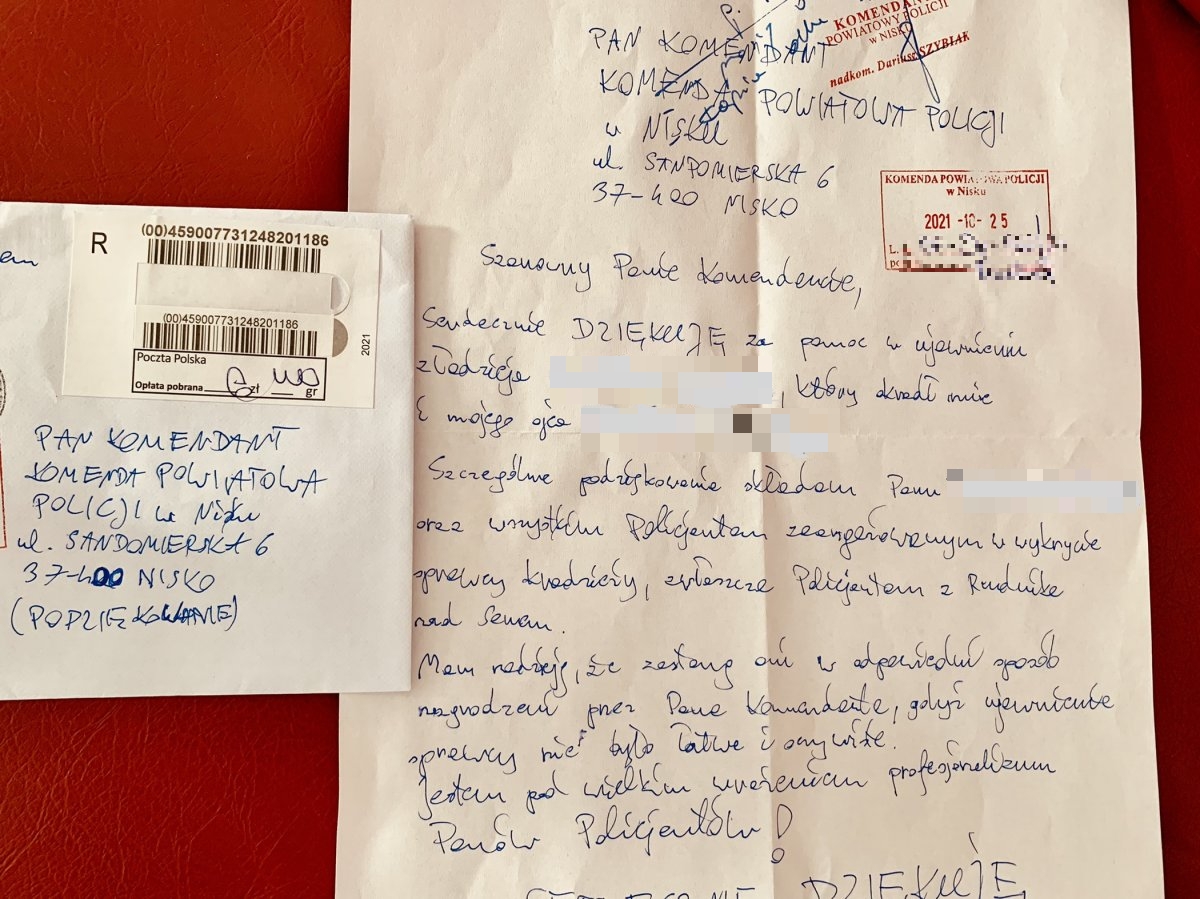 em
R
(00)459007731248201186
(00)459007731248201186
Poczta Polska
Opłata pobrana zł gr
2021
PAN KOMENDANT
KOMENDA POWIATOWA
POLICJI w Nisku
ul. SANDOMIERSKA 6
37-400 NISKO
(PODZIĘKOWANIE)
KOMENDANT
POWIATOWY POLICJI
w NISKU
nadkom. Dariusz SZYBIAK
PAN KOMENDANT
KOMENDA POWIATOWA POLICJI
w NISKU
ul. SANDOMIERSKA 6
37-400 NISKO
KOMENDA POWIATOWA POLICJI
w Nisku
2021 -10- 25
L.
Szanowny Panie Komendancie,
Serdecznie DZIĘKUJĘ za pomoc w ujawnieniu
złodzieja , który okradł mnie
i mojego ojca
Szczególne podziękowania składam Panu
oraz wszystkim Policjantom zaangażowanym w wykrycie
sprawcy kradzieży, zwłaszcza Policjantom z Rudnika
nad Sanem.
Mam nadzieję, że zostaną oni w odpowiedni sposób
nagrodzeni przez Pana Komendanta, gdyż ujawnienie
sprawcy nie było łatwe i oczywiste.
Jestem pod wielkim wrażeniem profesjonalizmu
Panów Policjantów!
DZIĘKUJĘ